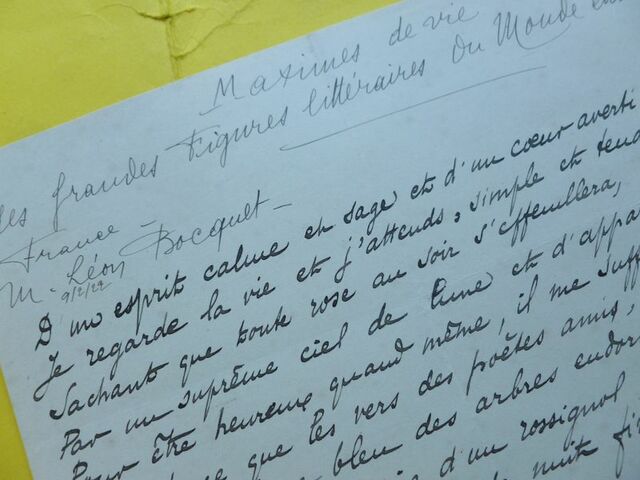 Maximes de vie
des grandes Figures littéraires du Monde
France -
M. Léon Bocquet -
9/2/22
D'un esprit calme et sage et d'un cœur averti
Je regarde la vie et j'attends, simple et
Sachant que toute rose au soir s'effeuillera,
Par un suprême ciel de lune et
Pour être heureux quand même, il me
que les vers des poètes amis,
bleu des arbres
d'un rossignol
nuit